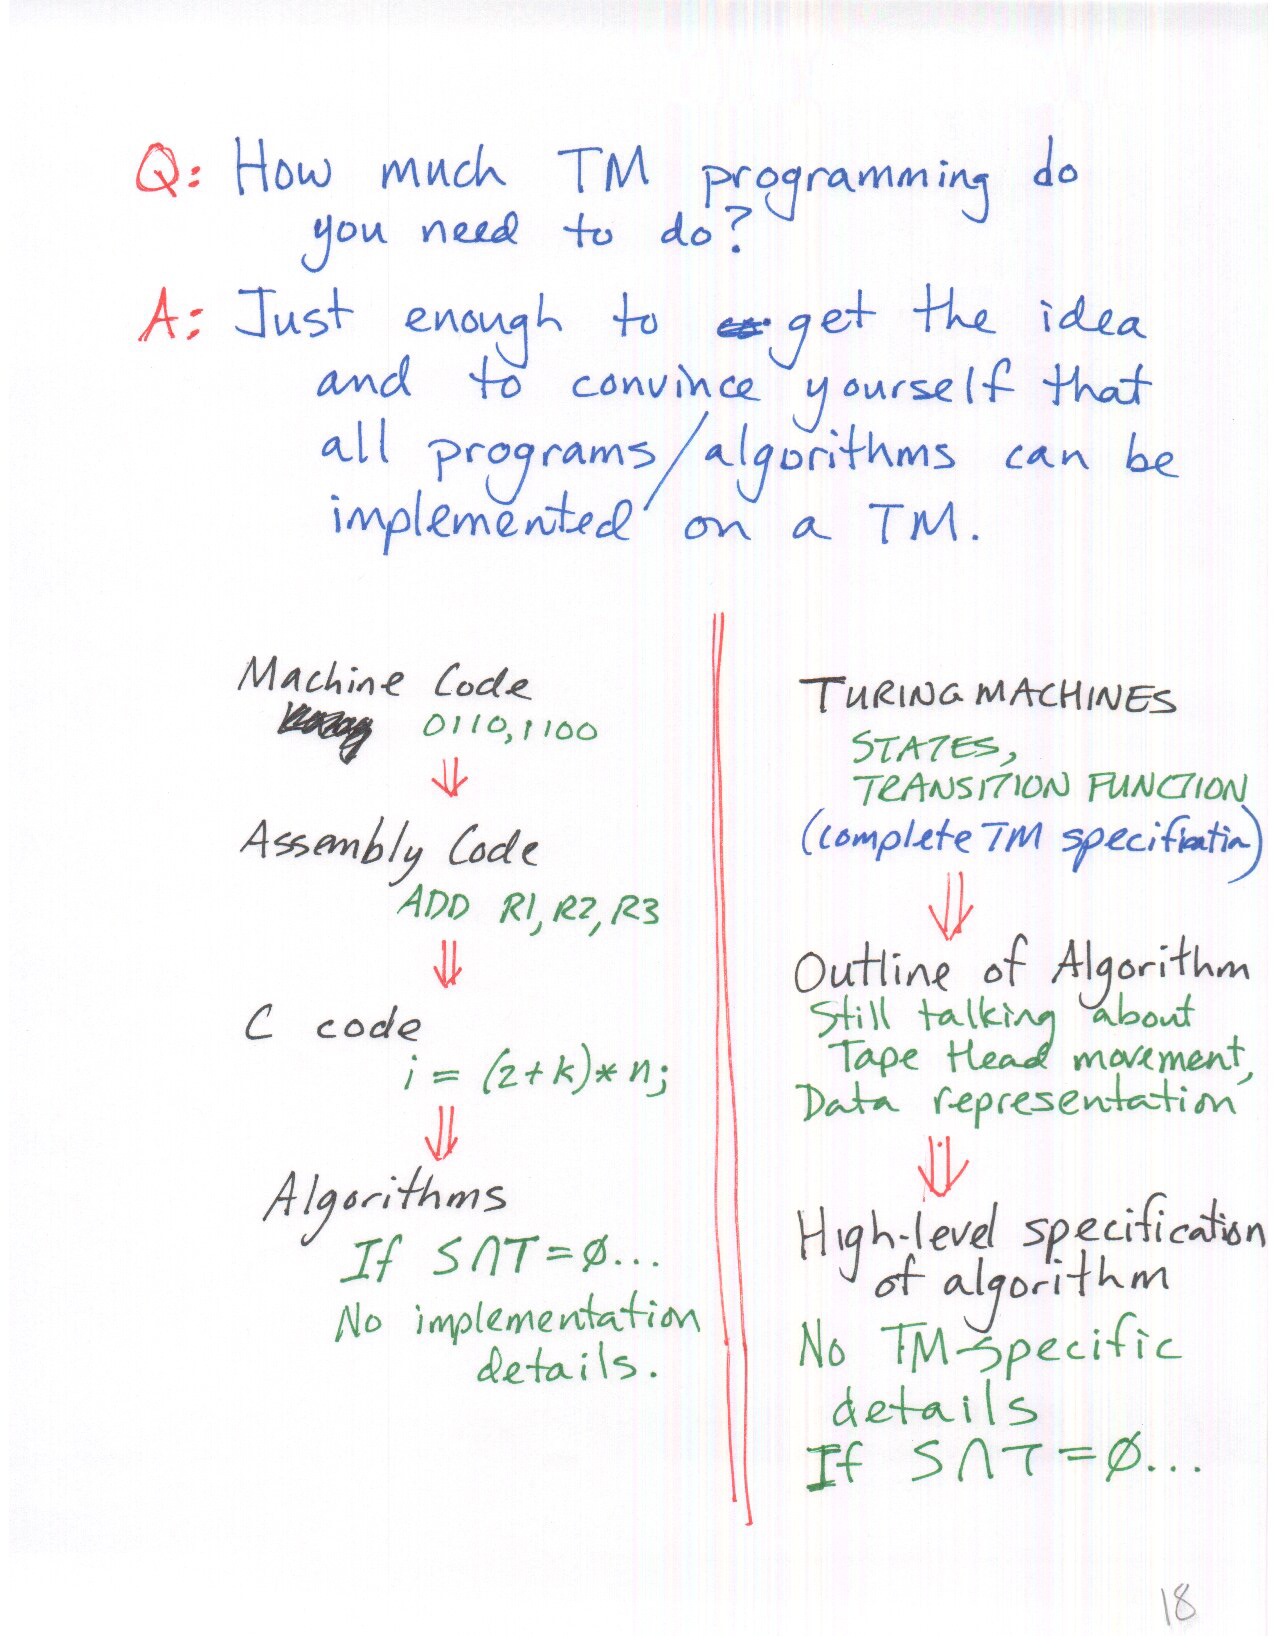 Q: How much TM programming do
you need to do?
A: Just enough to get the idea
and to convince yourself that
all programs/algorithms can be
implemented on a TM.
Machine Code
0110,1100
Assembly Code
ADD R1, R2, R3
C code
i = (2+k)* n;
Algorithms
If S∩T=∅...
No implementation
details.
TURING MACHINES
STATES,
TRANSITION FUNCTION
(complete TM specification)
Outline of Algorithm
Still talking about
Tape Head movement,
Data representation
High-level specification
of algorithm
No TM-specific
details
If S∩T=∅...
18